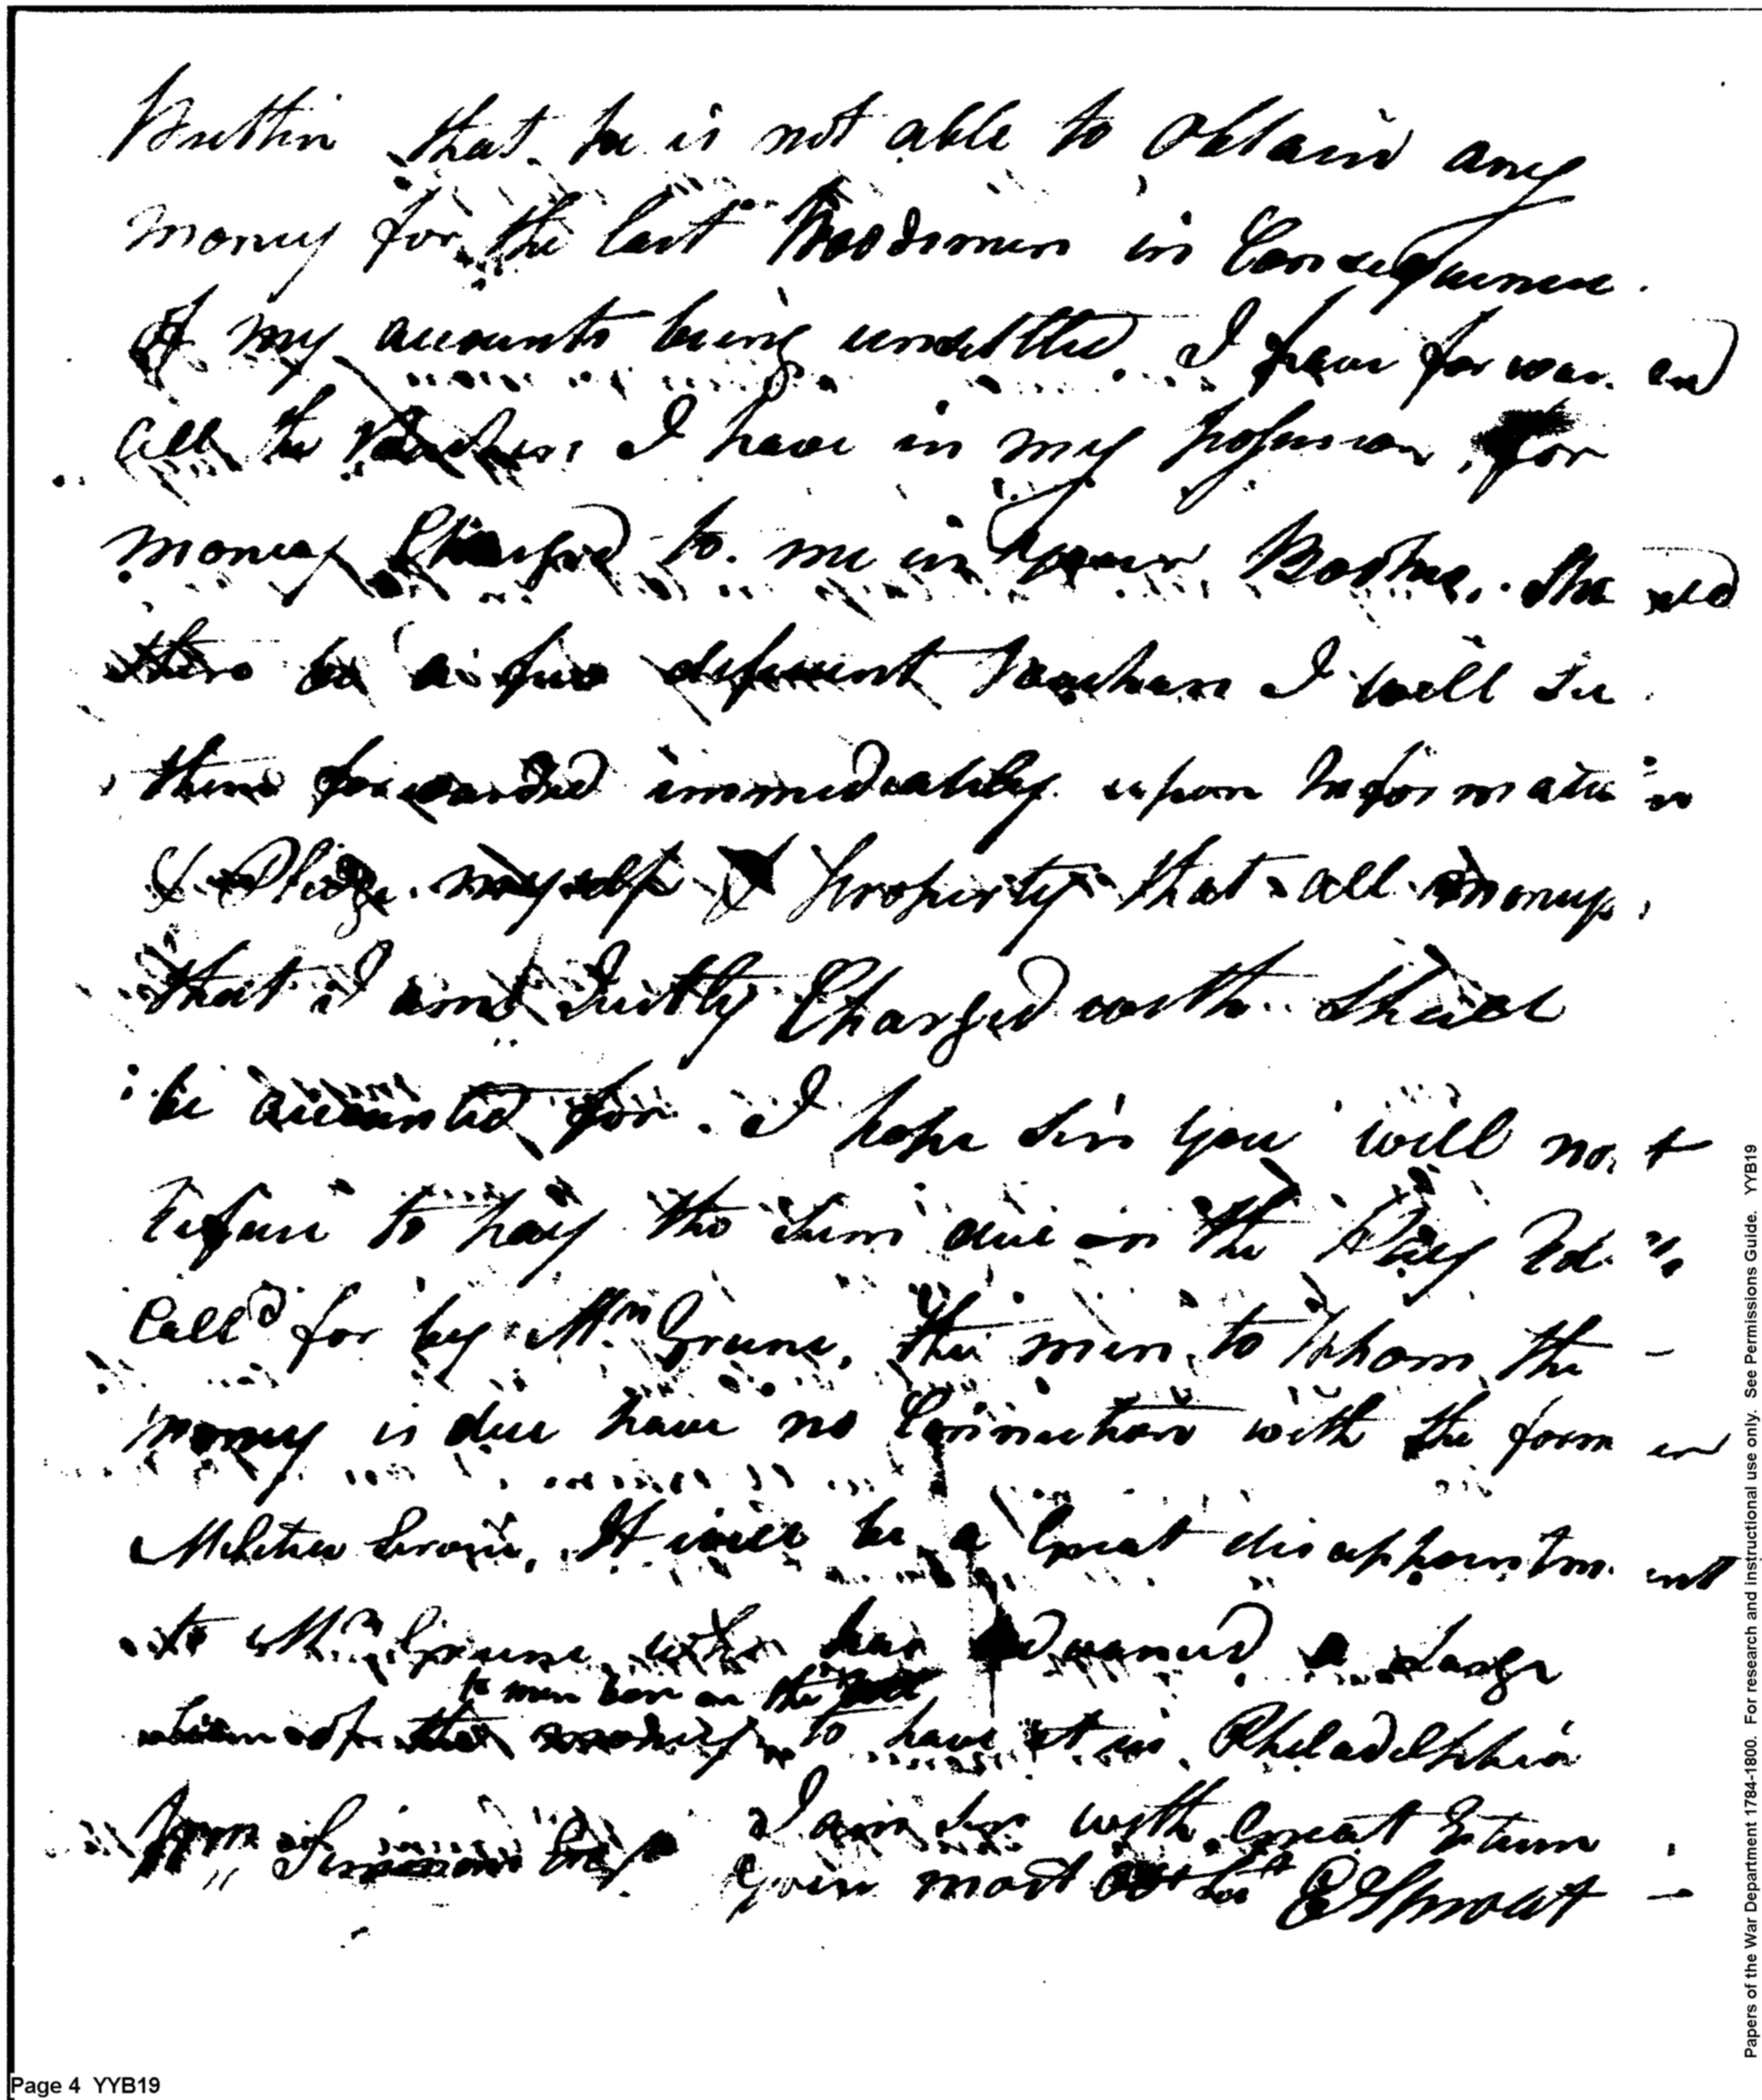 that he is not able to obtain any
money for the last Woodsmen in Consequence
of my accounts being unsettled I have forwarded
all the Vouchers I have in my possession for
money Charged to me in your Books. Should
there be a few deficient Vouchers I will see
them forwarded immediately upon Information
& Pledge myself & property that all moneys
that I am Justly Charged with Shall
be accounted for. I hope Sir you will not
refuse to pay the Sum due in the Pay
Call'd for by Mr. Greene, the men to whom the
money is due have no Connection with the former
It will be a Great disappointment
to Mr. Greene who has advanced a Large
to men on the
of the money to have it in Philadelphia
I am Sir with Great Esteem
Simmons Esqr
your most E Sproat
Papers of the War Department 1784-1800. For research and instructional use only. See Permissions Guide. YYB19
Page 4 YYB19